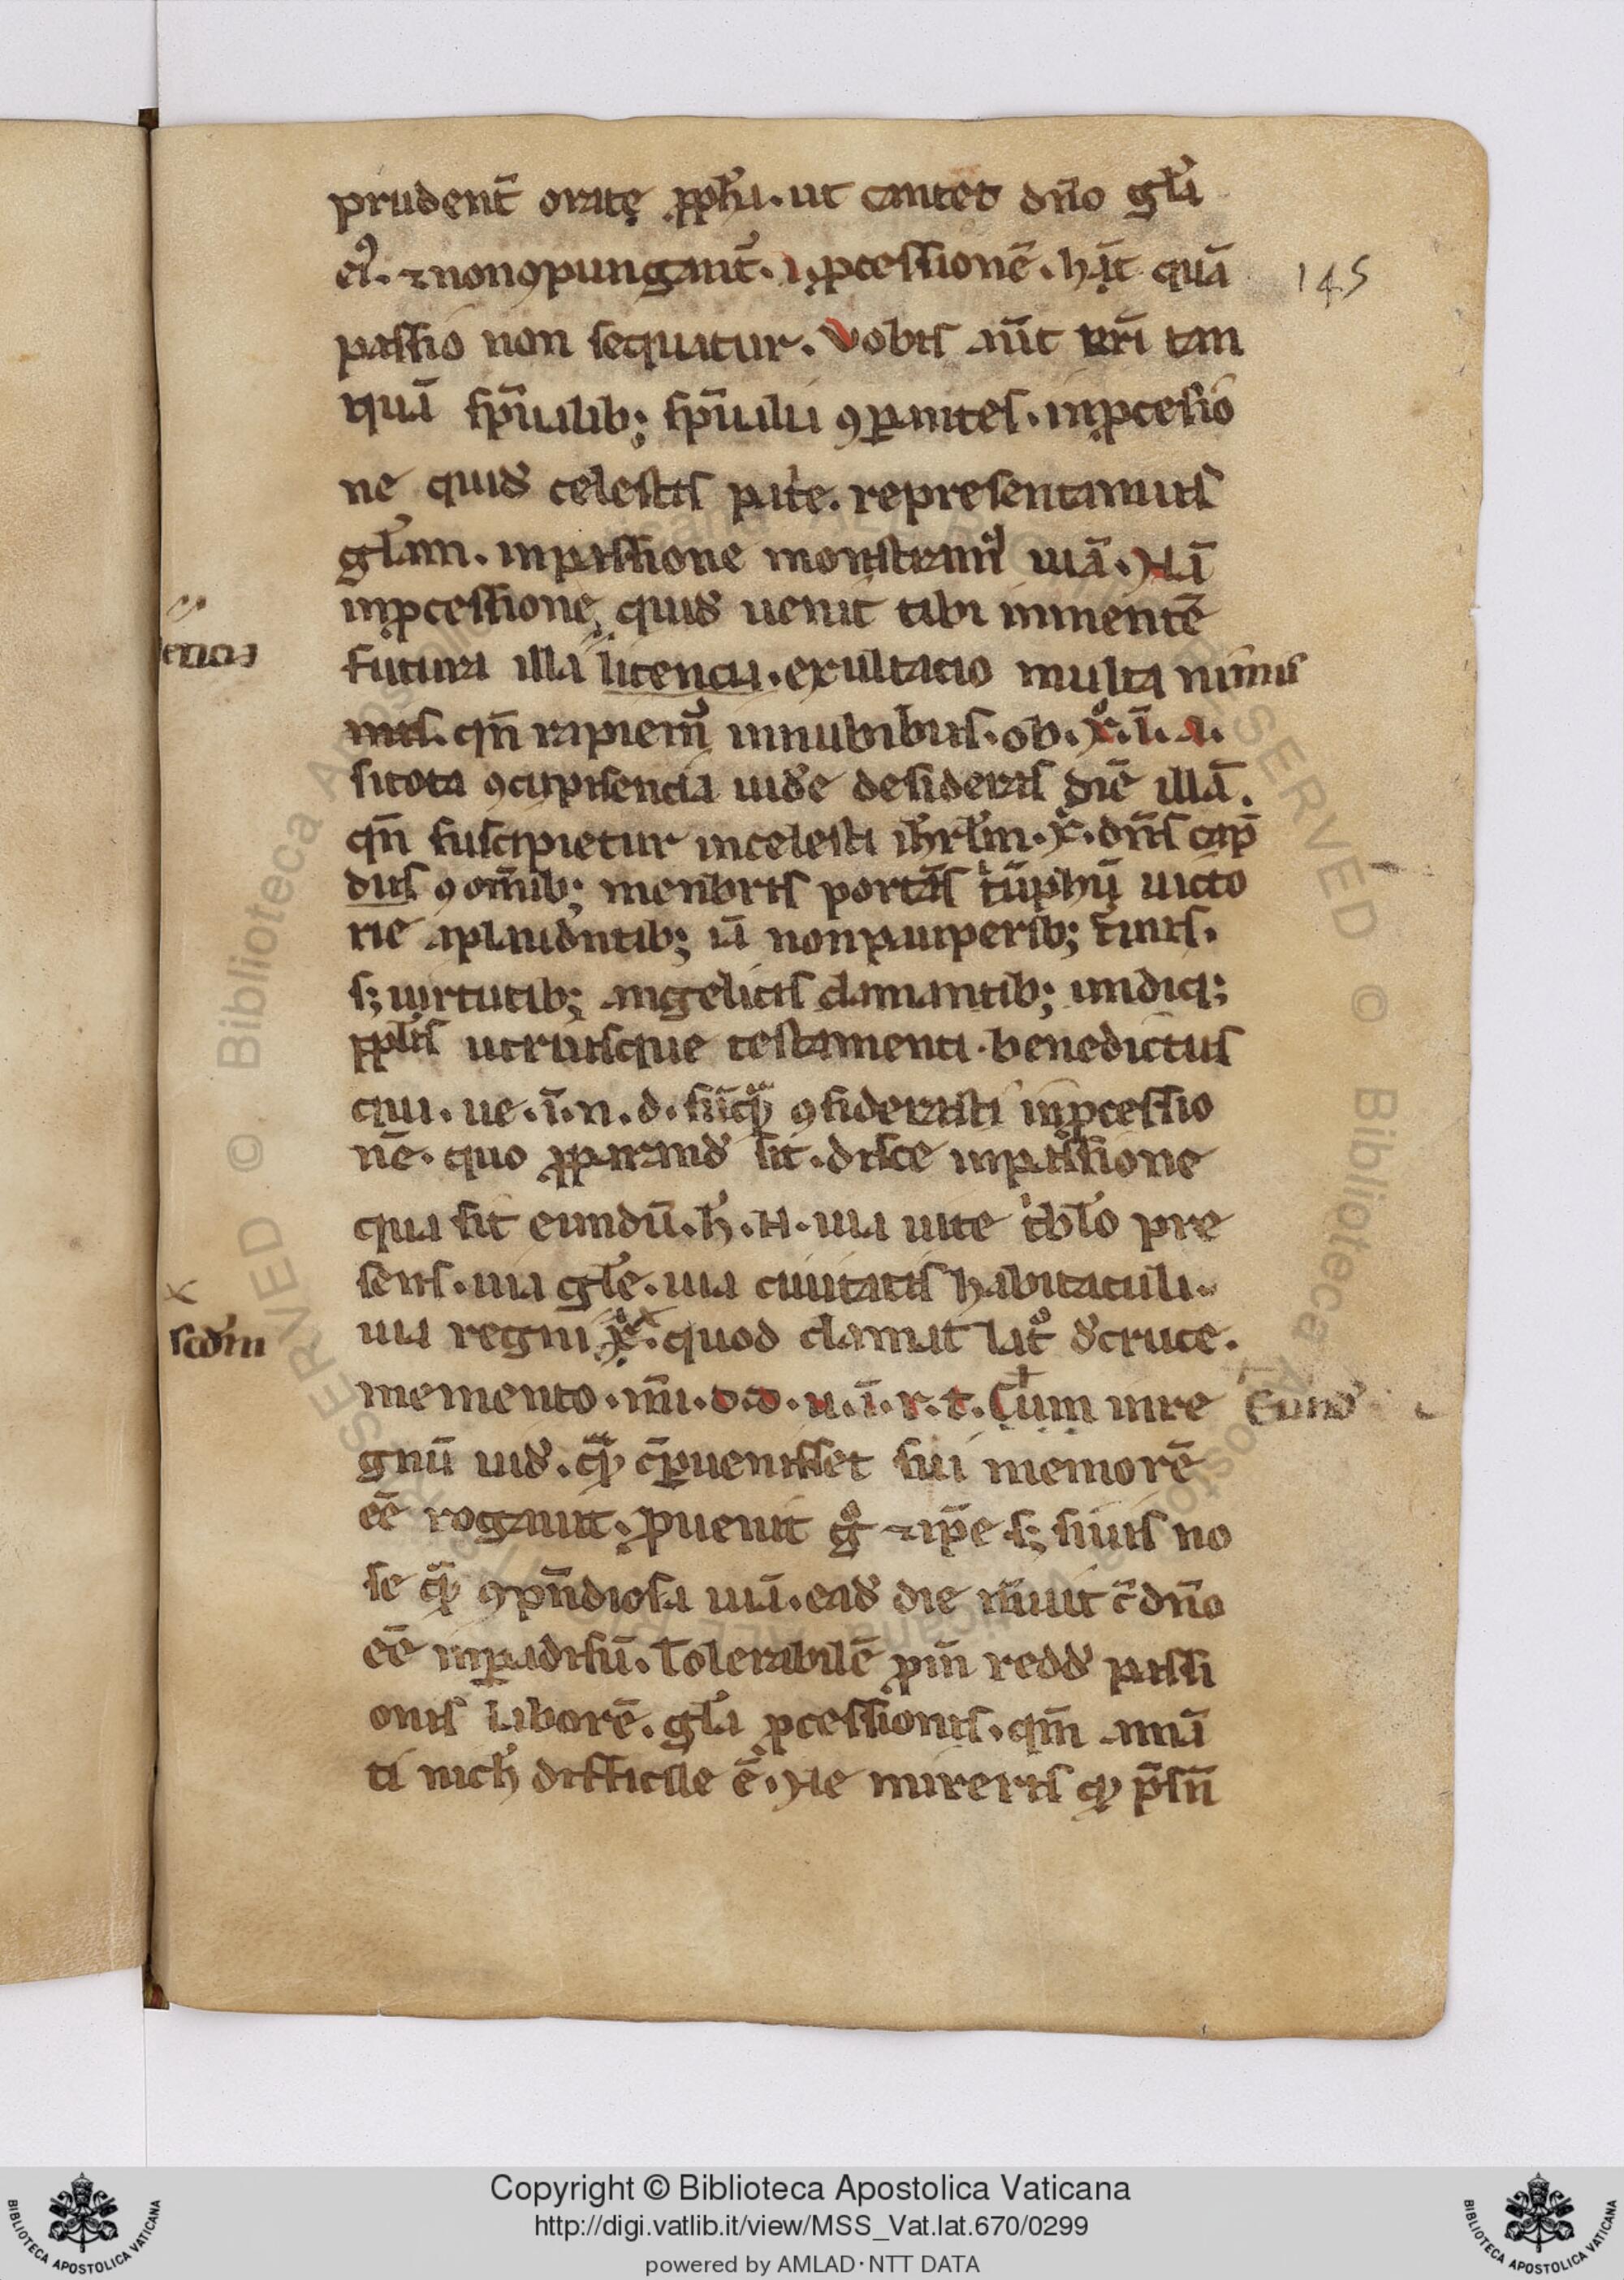 prudent̃ oratẹ ꝓph̃a. ut cantet dño gl̃a
ei᷒. ⁊ non ꝯpungant᷒. i. ꝓcessionẽ. hãt quã
passio non sequatur. Vobis aũt ur̃i tan
quã sp̃ualib; sp̃ualia ꝯꝑantes. in ꝓcesio
ne quid celestis pat̃e. representamus
gl̃am. in passione monstram᷒ uiã. Nã
in ꝓcessione quid uenit tibi in mentẽ
futura illa licencia. exultacio multa nimis
mis. qñ rapiem᷒ in nubibus. ob. xͦ. i. a.
si tota ꝯcupisencia uid̃e desideras diẽ illã.
qñ suscipietur in celesti ih̃rl̃m. xͨ. dñs cap̃
dus ꝯ omĩb; menbris portãs tͥũphũ uicto
rie aplaud̃ntib; iã non pauperib; t̃inis.
s; uirtutib; angelicis clamantib; undiq;
ppl̃is utriusque testamenti. benedictus
qui. ue. ĩ. n. d.
ꝯsiderasti in ꝓcessio
nẽ. quo ꝓparand̃ sit. disce in passione
qua sit eundũ. h̃. N. uia uite tͥbl̃o pre
sens. uia gl̃e. uia ciuitatis habitaculi.
uia regni xͨ. quod clamat latͦ d̃ cruce.
memento. m̃i. d. d. u. ĩ. r. t. Cum in re
gnũ uid̃. qͣ ꝑuenisset sui memorẽ
eẽ rogauit. ꝑuenit gͦ ⁊ ip̃e s; si uis no
se qͣ ꝯpñdiosa uiã. ead̃ die
c̃ dño
eẽ in paradisũ. Tolerabilẽ
redd̃ passi
onis laborẽ. gl̃a ꝓcessionis. qm̃ amã
ti nich̃ difficile ẽ. Ne mireris qͥ p̃sñ
145
scd̃m
Eund̃
Copyright © Biblioteca Apostolica Vaticana
http://digi.vatlib.it/view/MSS_Vat.lat.670/0299
powered by AMLAD·NTT DATA
BIBLIOTECA APOSTOLICA VATICANA
BIBLIOTECA APOSTOLICA VATICANA